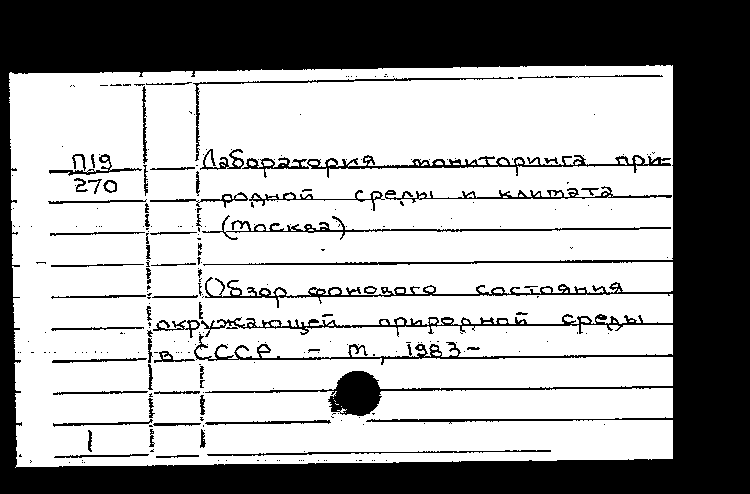 П19
270
Лаборатория мониторинга при=
родной среды и климата
(Москва)
Обзор фонового состояния
окружающей природной среды
в СССР. - М., 1983-
1